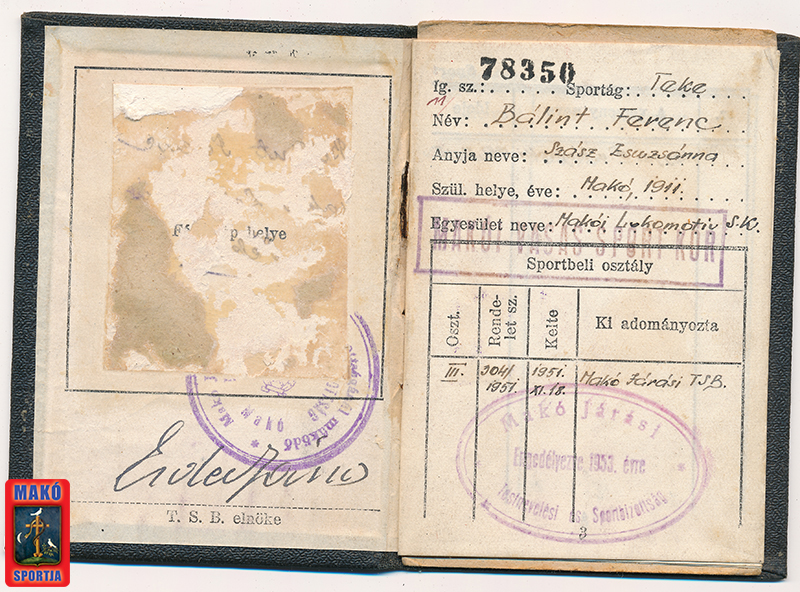 helye
T. S. B. elnöke
MAKÓ
SPORTJA
78350
Íg. sz.: Sportág: Teke
Név: Bálint Ferenc
Anyja neve: Szász Zsuzsánna
Szül. helye, éve: Makó, 1911.
Egyesület neve: Makói Lokomotiv S.K.
MAKÓI VASAS SPORT KÖR
Sportbeli osztály
Oszt. Rendelet sz. Kelte Ki adományozta
III. 304/1951. 1951. XI. 18. Makó Járási TSB.
Makó Járási
Engedélyezve, 1953. évre
Testnevelési és Sportbizottság
3